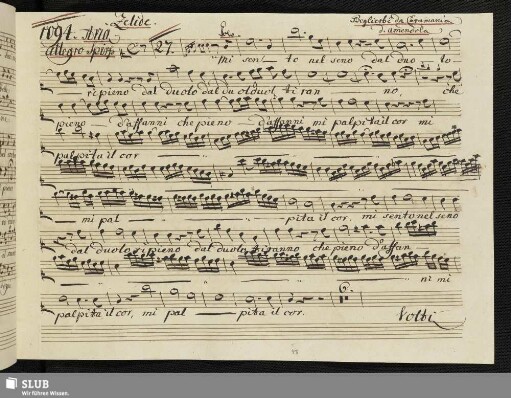 Zelide.
1094. Aria
Allegro Spirit.
27
Solo
Beglierbei di Caramania
d. Amendola
Mi sen - to nel seno dal duo - lo
ripieno dal duolo dal duol ti ran - no, che
pieno d'affanni che pieno d'affanni mi palpita il cor mi
palpita il cor
mi pal - pita il cor. mi sento nel seno
dal duolo ripieno dal duolo tiranno che pieno d'affan
ni mi
palpita il cor, mi pal - pita il cor.
Volti
SLUB
Wir führen Wissen.